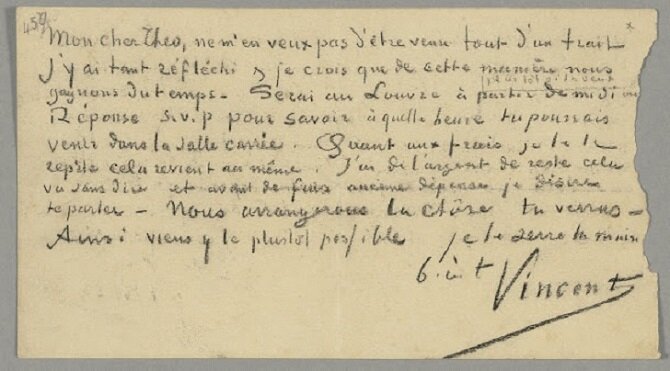 459
Mon cher Theo, ne m'en veux pas d'être venu tout d'un trait
J'y ai tant réfléchi & je crois que de cette manière nous
gagnons du temps - Serai au Louvre à partir de midi
ou plus tôt si tu veux
Réponse s.v.p pour savoir à quelle heure tu pourrais
venir dans la Salle carrée. Quant aux frais je te le
repète cela revient au même. J'ai de l'argent de reste cela
va sans dire et avant de faire aucune dépense je désire
te parler - Nous arrangerons la chôse tu verras -
Ainsi viens y le plustot possible je te serre la main
b. à t Vincent